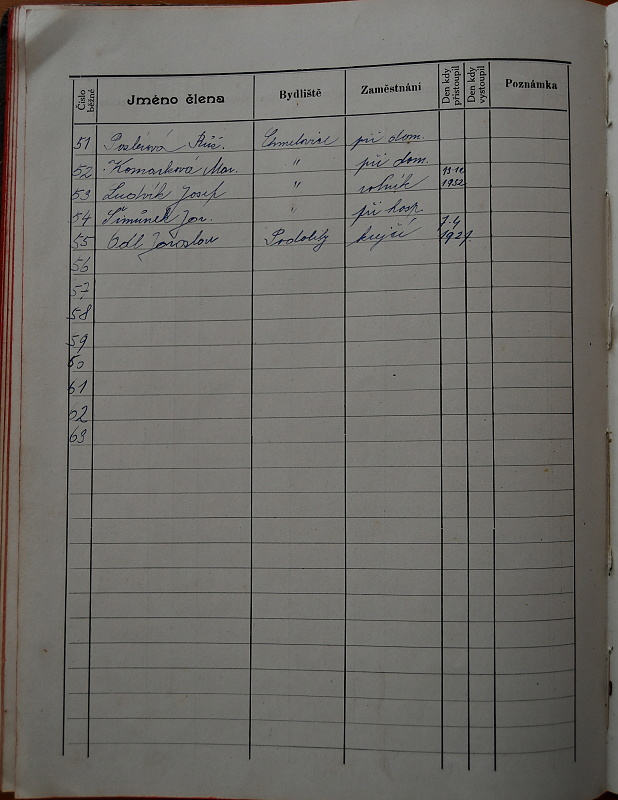 Číslo běžné Jméno člena Bydliště Zaměstnání Den kdy přistoupil Den kdy vystoupil Poznámka
51 Poslerová Růž. Chmelovice při dom.
52 Komárková Mar. " při dom.
53 Ludvík Josef " rolník 13.12 1932
54 Šimůnek Jar. " při hosp.
55 Odl Jaroslav Podolíly krejčí 7.4 1921.
56
57
58
59
60
61
62
63